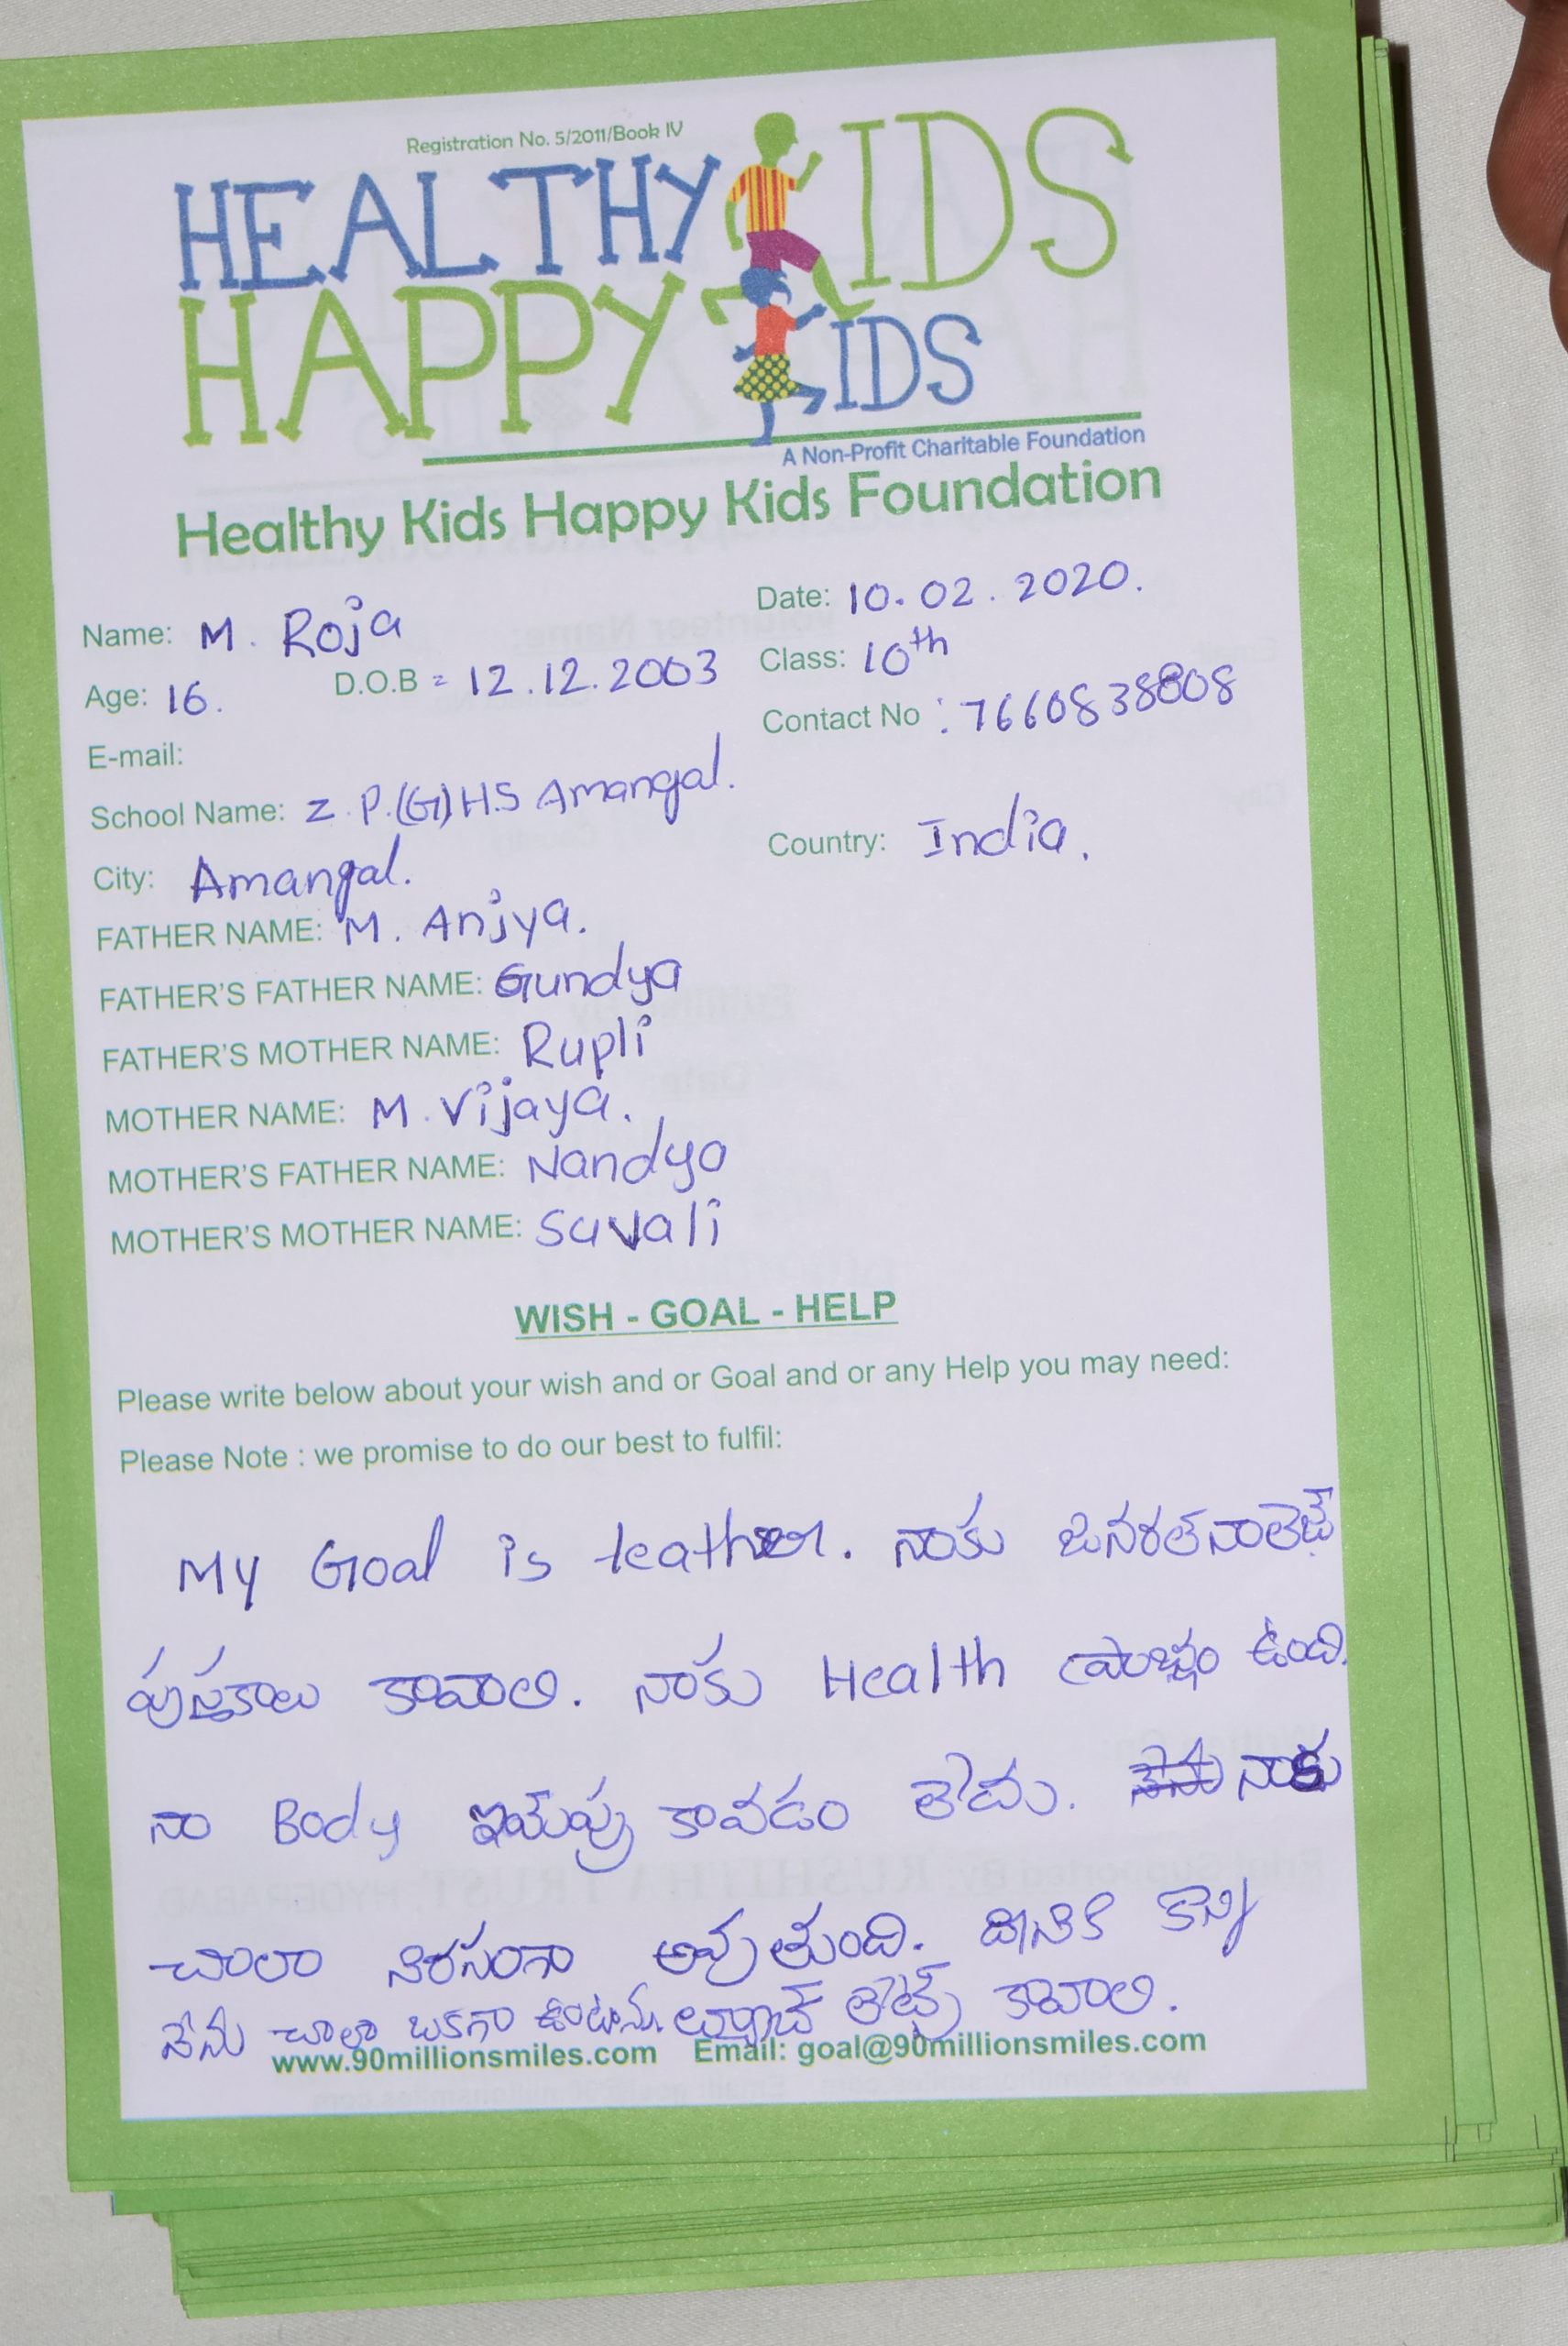 Registration No. 5/2011/Book IV
HEALTHY KIDS
HAPPY KIDS
A Non-Profit Charitable Foundation
Healthy Kids Happy Kids Foundation
Name: M. Roja
Date: 10.02.2020.
Age: 16. D.O.B = 12.12.2003
Class: 10th
Contact No : 7660838808
E-mail:
School Name: Z.P.(G)H.S Amangal.
City: Amangal.
Country: India.
FATHER NAME: M. Anjya.
FATHER'S FATHER NAME: Gundya
FATHER'S MOTHER NAME: Rupli
MOTHER NAME: M. Vijaya.
MOTHER'S FATHER NAME: Nandyo
MOTHER'S MOTHER NAME: Suvali
WISH - GOAL - HELP
Please write below about your wish and or Goal and or any Help you may need:
Please Note : we promise to do our best to fulfil:
My Goal is నాకు
పుస్తకాలు కావాలి. నాకు Health ఉంది.
నా Body కావడం లేదు. నాకు
చాలా నిరసంగా అవుతుంది. దీనికి కొన్ని
నేను చాలా బకగా ఉంటాను. కావాలి.
www.90millionsmiles.com Email: goal@90millionsmiles.com